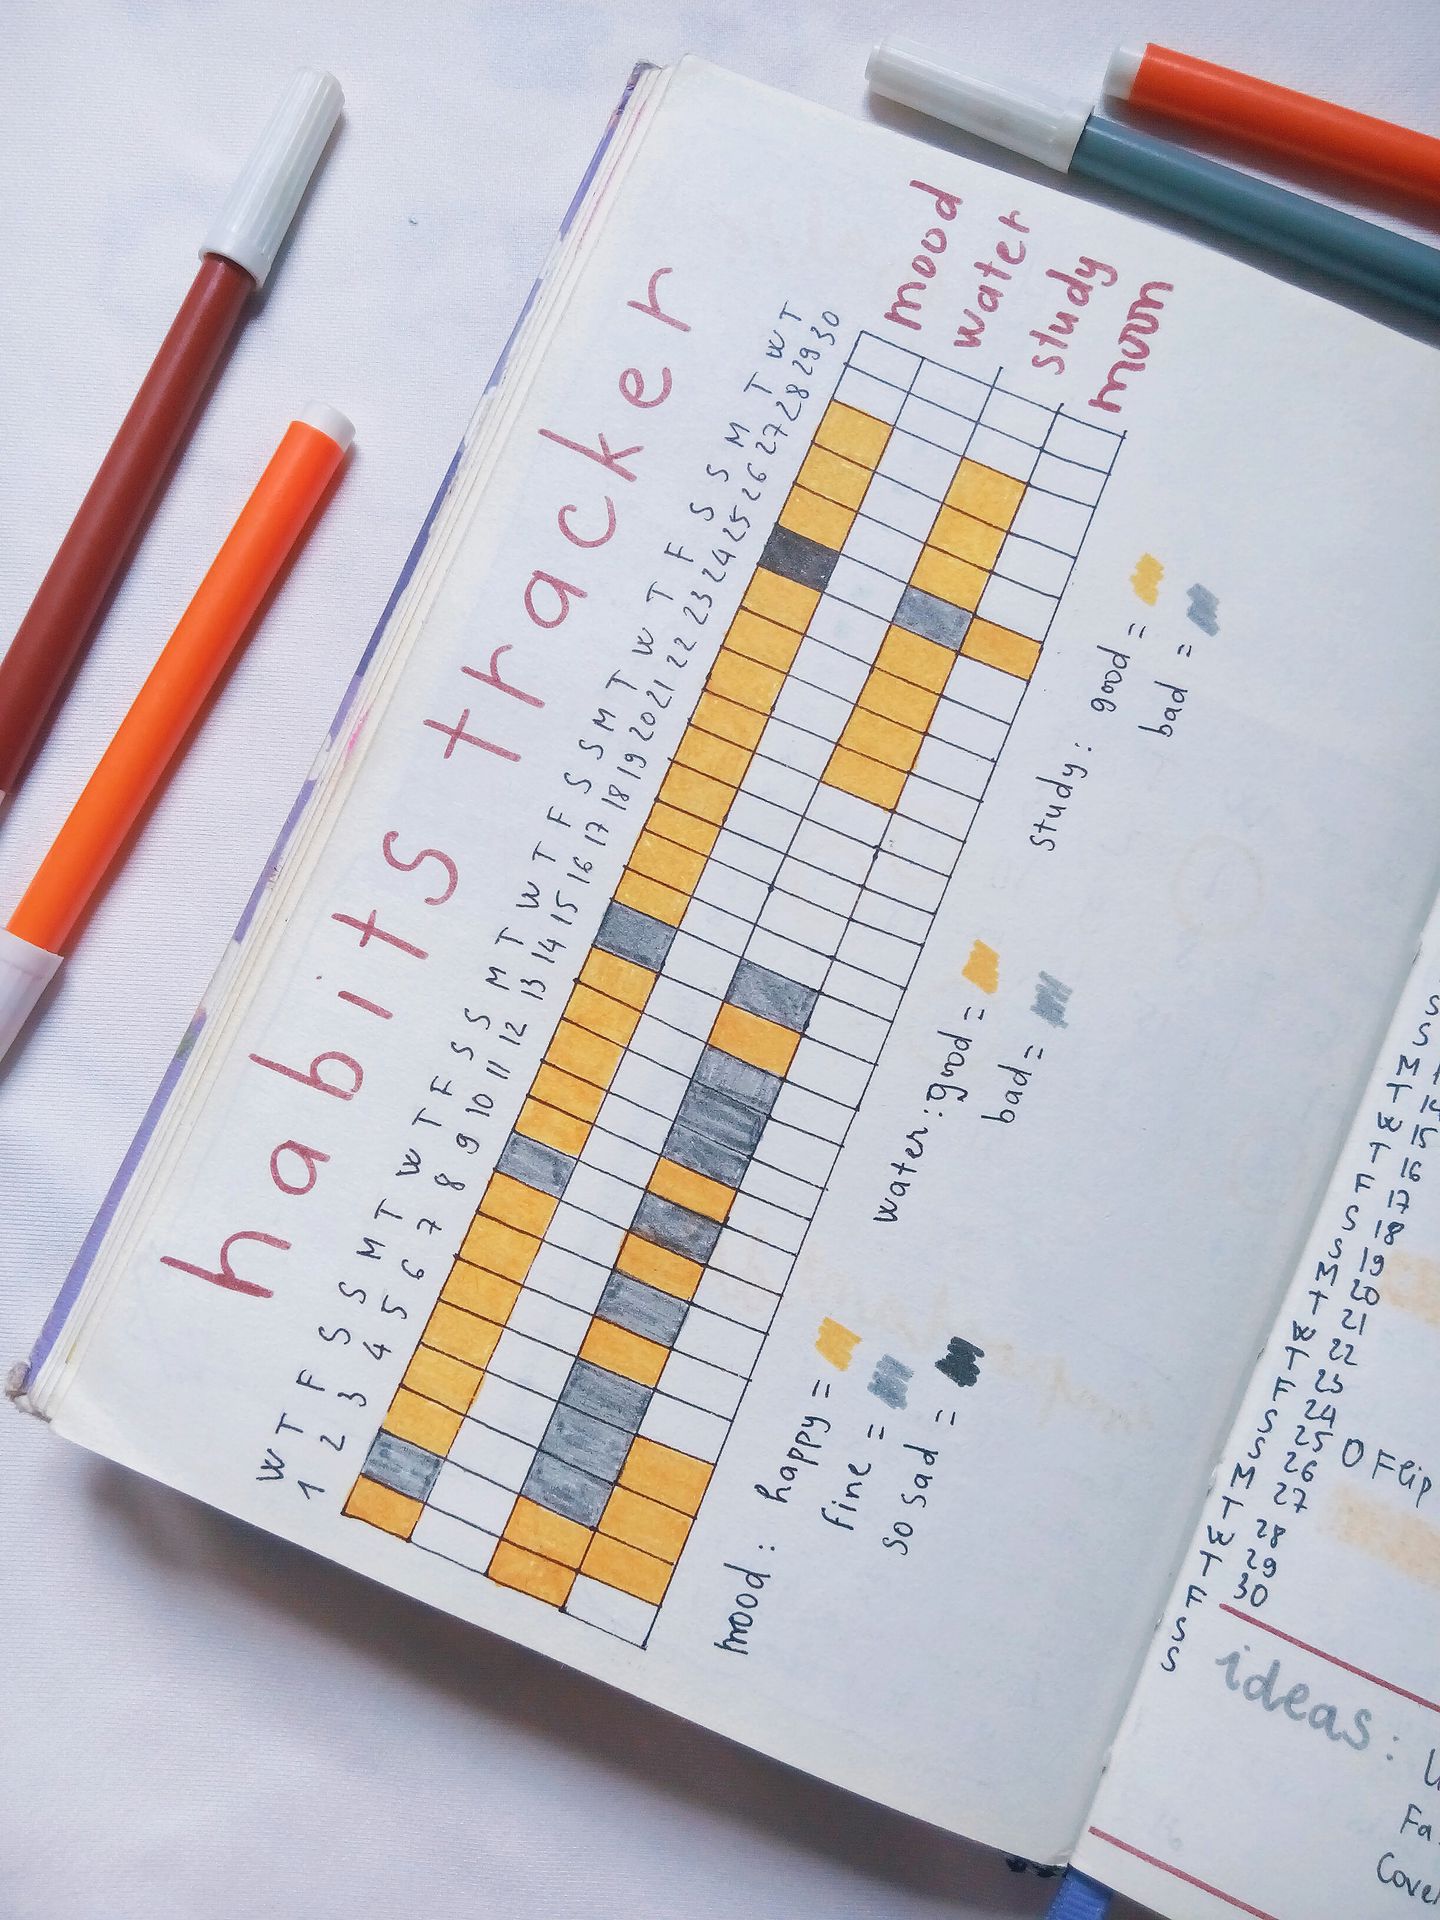 habits tracker
W T F S S M T W T F S S M T W T F S S M T W T F S S M T W T
1 2 3 4 5 6 7 8 9 10 11 12 13 14 15 16 17 18 19 20 21 22 23 24 25 26 27 28 29 30
mood
water
study
moon
mood: happy =
fine =
so sad =
water: good =
bad =
study: good =
bad =
S
S
M
T 14
W 15
T 16
F 17
S 18
S 19
M 20
T 21
W 22
T 23
F 24
S 25
S 26
M 27
T 28
W 29
T 30
F
S
S
O Flip
ideas: